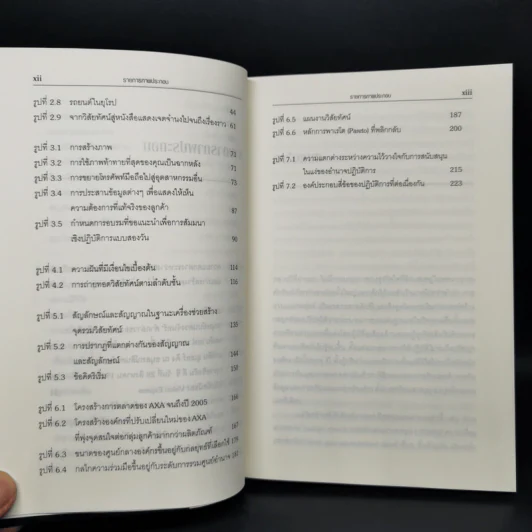 xii
รายการภาพประกอบ
รูปที่ 2.8 รถยนต์ในยุโรป 44
รูปที่ 2.9 จากวิสัยทัศน์สู่หนังสือแสดงเจตจำนงไปจนถึงเรื่องราว 61
รูปที่ 3.1 การสร้างภาพ 71
รูปที่ 3.2 การใช้ภาพท้าทายที่สุดของคุณเป็นฉากหลัง
รูปที่ 3.3 การขยายโทรศัพท์มือถือไปสู่อุตสาหกรรมอื่น 75
รูปที่ 3.4 การประสานข้อมูลต่างๆ เพื่อแสดงให้เห็น
ความต้องการที่แท้จริงของลูกค้า 87
รูปที่ 3.5 กำหนดการอบรมที่ขอแนะนำเพื่อการสัมมนา
เชิงปฏิบัติการแบบสองวัน 90
รูปที่ 4.1 ความฝันที่มีเงื่อนไขเบื้องต้น 114
รูปที่ 4.2 การถ่ายทอดวิสัยทัศน์ตามลำดับชั้น 116
รูปที่ 5.1 สัญลักษณ์และสัญญาณในฐานะเครื่องช่วยสร้าง
จุดรวมวิสัยทัศน์ 135
รูปที่ 5.2 การปรากฏที่แตกต่างกันของสัญญาณ
และสัญลักษณ์ 144
รูปที่ 5.3 ข้อคิดริเริ่ม 158
รูปที่ 6.1 โครงสร้างการตลาดของ AXA จนถึงปี 2005 166
รูปที่ 6.2 โครงสร้างองค์กรที่ปรับเปลี่ยนใหม่ของ AXA
ที่พุ่งจุดสนใจต่อกลุ่มลูกค้ามากกว่าผลิตภัณฑ์ 167
รูปที่ 6.3 ขนาดของศูนย์กลางองค์กรขึ้นอยู่กับกลยุทธ์ที่เลือกใช้ 179
รูปที่ 6.4 กลไกความร่วมมือขึ้นอยู่กับระดับการรวมศูนย์อำนาจ
xiii
รายการภาพประกอบ
รูปที่ 6.5 แผนงานวิสัยทัศน์ 187
รูปที่ 6.6 หลักการพาเรโต (Pareto) ที่พลิกกลับ 200
รูปที่ 7.1 ความแตกต่างระหว่างความไว้วางใจกับการสนับสนุน
ในแง่ของอำนาจปฏิบัติการ 215
รูปที่ 7.2 องค์ประกอบสี่ข้อของปฏิบัติการที่ต่อเนื่องกัน 223